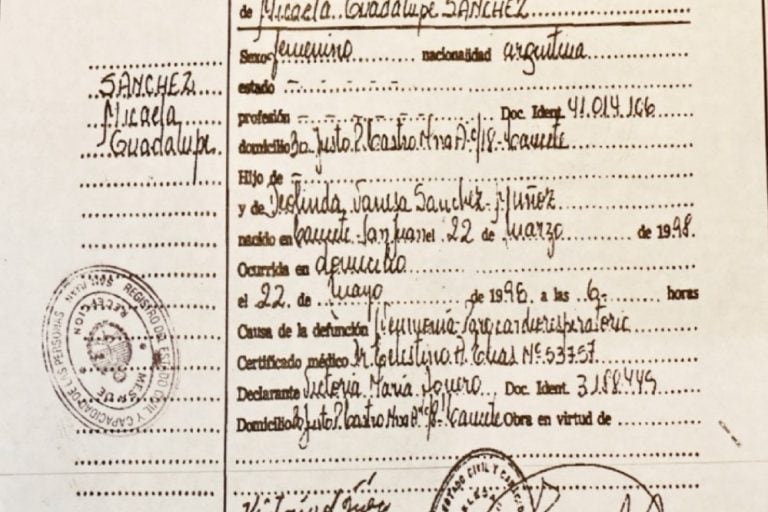 de Micaela Guadalupe SANCHEZ
Sexo femenino nacionalidad argentina
SANCHEZ
Micaela
Guadalupe
estado
profesión Doc. Ident. 41.014.166
domicilio Bo Justo P. Castro Mna A c/18- Caucete
Hijo de
y de Deolinda Vanesa Sanchez- Muñoz
nacido en Caucete-San Juan el 22 de Marzo de 1998.
Ocurrida en domicilio
el 22. de Mayo de 1998 a las 6- horas
Causa de la defunción Neumonía-Paro cardiorespiratorio
Certificado médico Dr Celestino A. Elias Nº 53757
Declarante Victoria Maria Doc. Ident. 3.188.445
Domicilio Bo Justo P. Castro Mna A c/18- Caucete Obra en virtud de
REGISTRO DEL ESTADO CIVIL Y CAPACIDAD DE LAS PERSONAS
SAN JUAN
RECEPCION
MESA DE
ESTADO CIVIL Y CAPACI